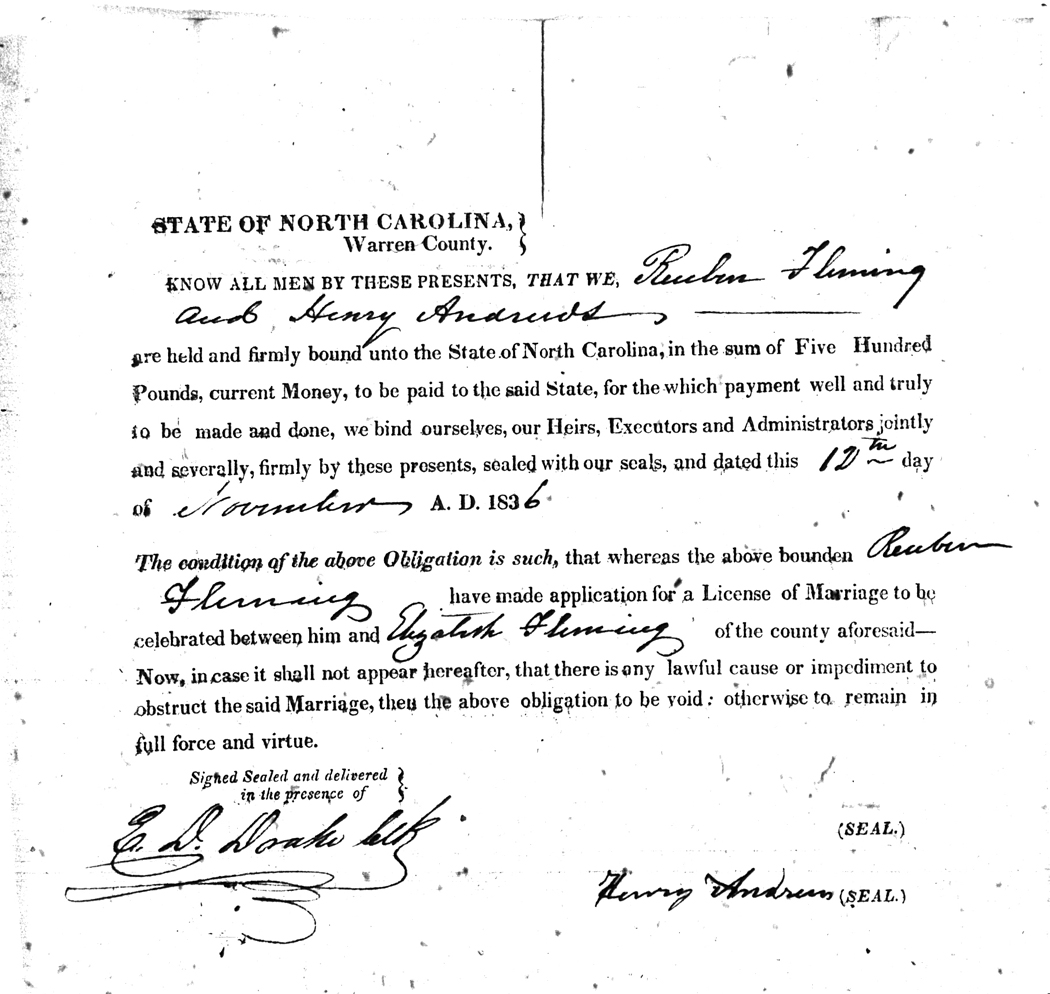 STATE OF NORTH CAROLINA,
Warren County.
KNOW ALL MEN BY THESE PRESENTS, THAT WE, Reuben Fleming
and Henry Andrews
are held and firmly bound unto the State of North Carolina, in the sum of Five Hundred
Pounds, current Money, to be paid to the said State, for the which payment well and truly
to be made and done, we bind ourselves, our Heirs, Executors and Administrators jointly
and severally, firmly by these presents, sealed with our seals, and dated this 12th day
of November A. D. 1836
The condition of the above Obligation is such, that whereas the above bounden Reuben
Fleming have made application for a License of Marriage to be
celebrated between him and Elizabeth Fleming of the county aforesaid—
Now, in case it shall not appear hereafter, that there is any lawful cause or impediment to
obstruct the said Marriage, then the above obligation to be void: otherwise to remain in
full force and virtue.
Signed Sealed and delivered
in the presence of
E. D. Drake Clk
(SEAL.)
Henry Andrews (SEAL.)